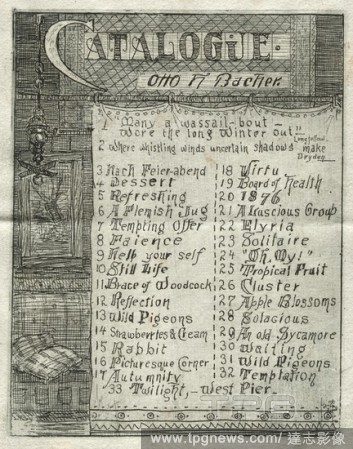 CATALOGUE.
Otto H Bacher.
1 Many a wassail-bout
Wore the long Winter out
Longfellow.
2 where whistling winds uncertain shadows make
Dryden
3 Nach Feier-abend
4 Dessert
5 Refreshing
6 A Flemish Jug
7 Tempting Offer
8 Faience
9 Help your self
10 Still Life
11 Brace of Woodcock
12 Reflection
13 Wild Pigeons
14 Strawberries & Cream
15 Rabbit
16 Picturesque Corner
17 Autumnity
18 Virtu
19 Board of Health
20 1876
21 A Luscious Group
22 Elyria
23 Solitaire
24 "Oh, My!"
25 Tropical Fruit
26 Cluster
27 Apple Blossoms
28 Solacious
29 An old Sycamore
30 Waiting
31 Wild Pigeons
32 Temptation
33 Twilight, - West Pier.
www.tpgnews.com/ 達志影像